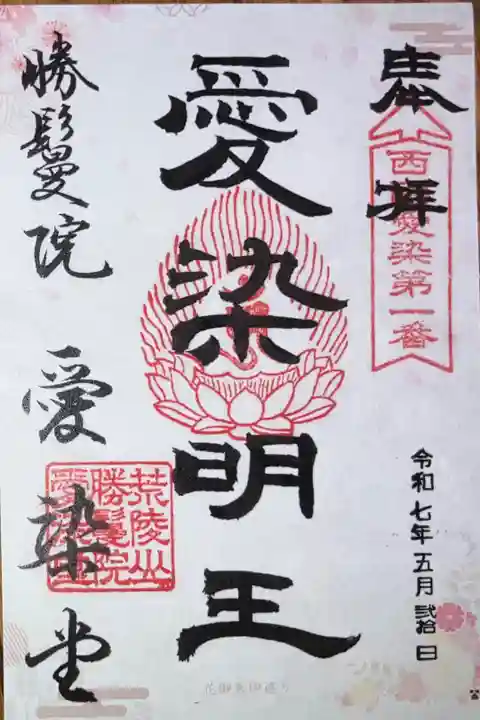 奉拝
西愛染第一番
令和七年五月弐拾日
愛染明王
勝鬘院 愛染堂
荒陵山
勝鬘院
愛染堂
花御朱印巡り